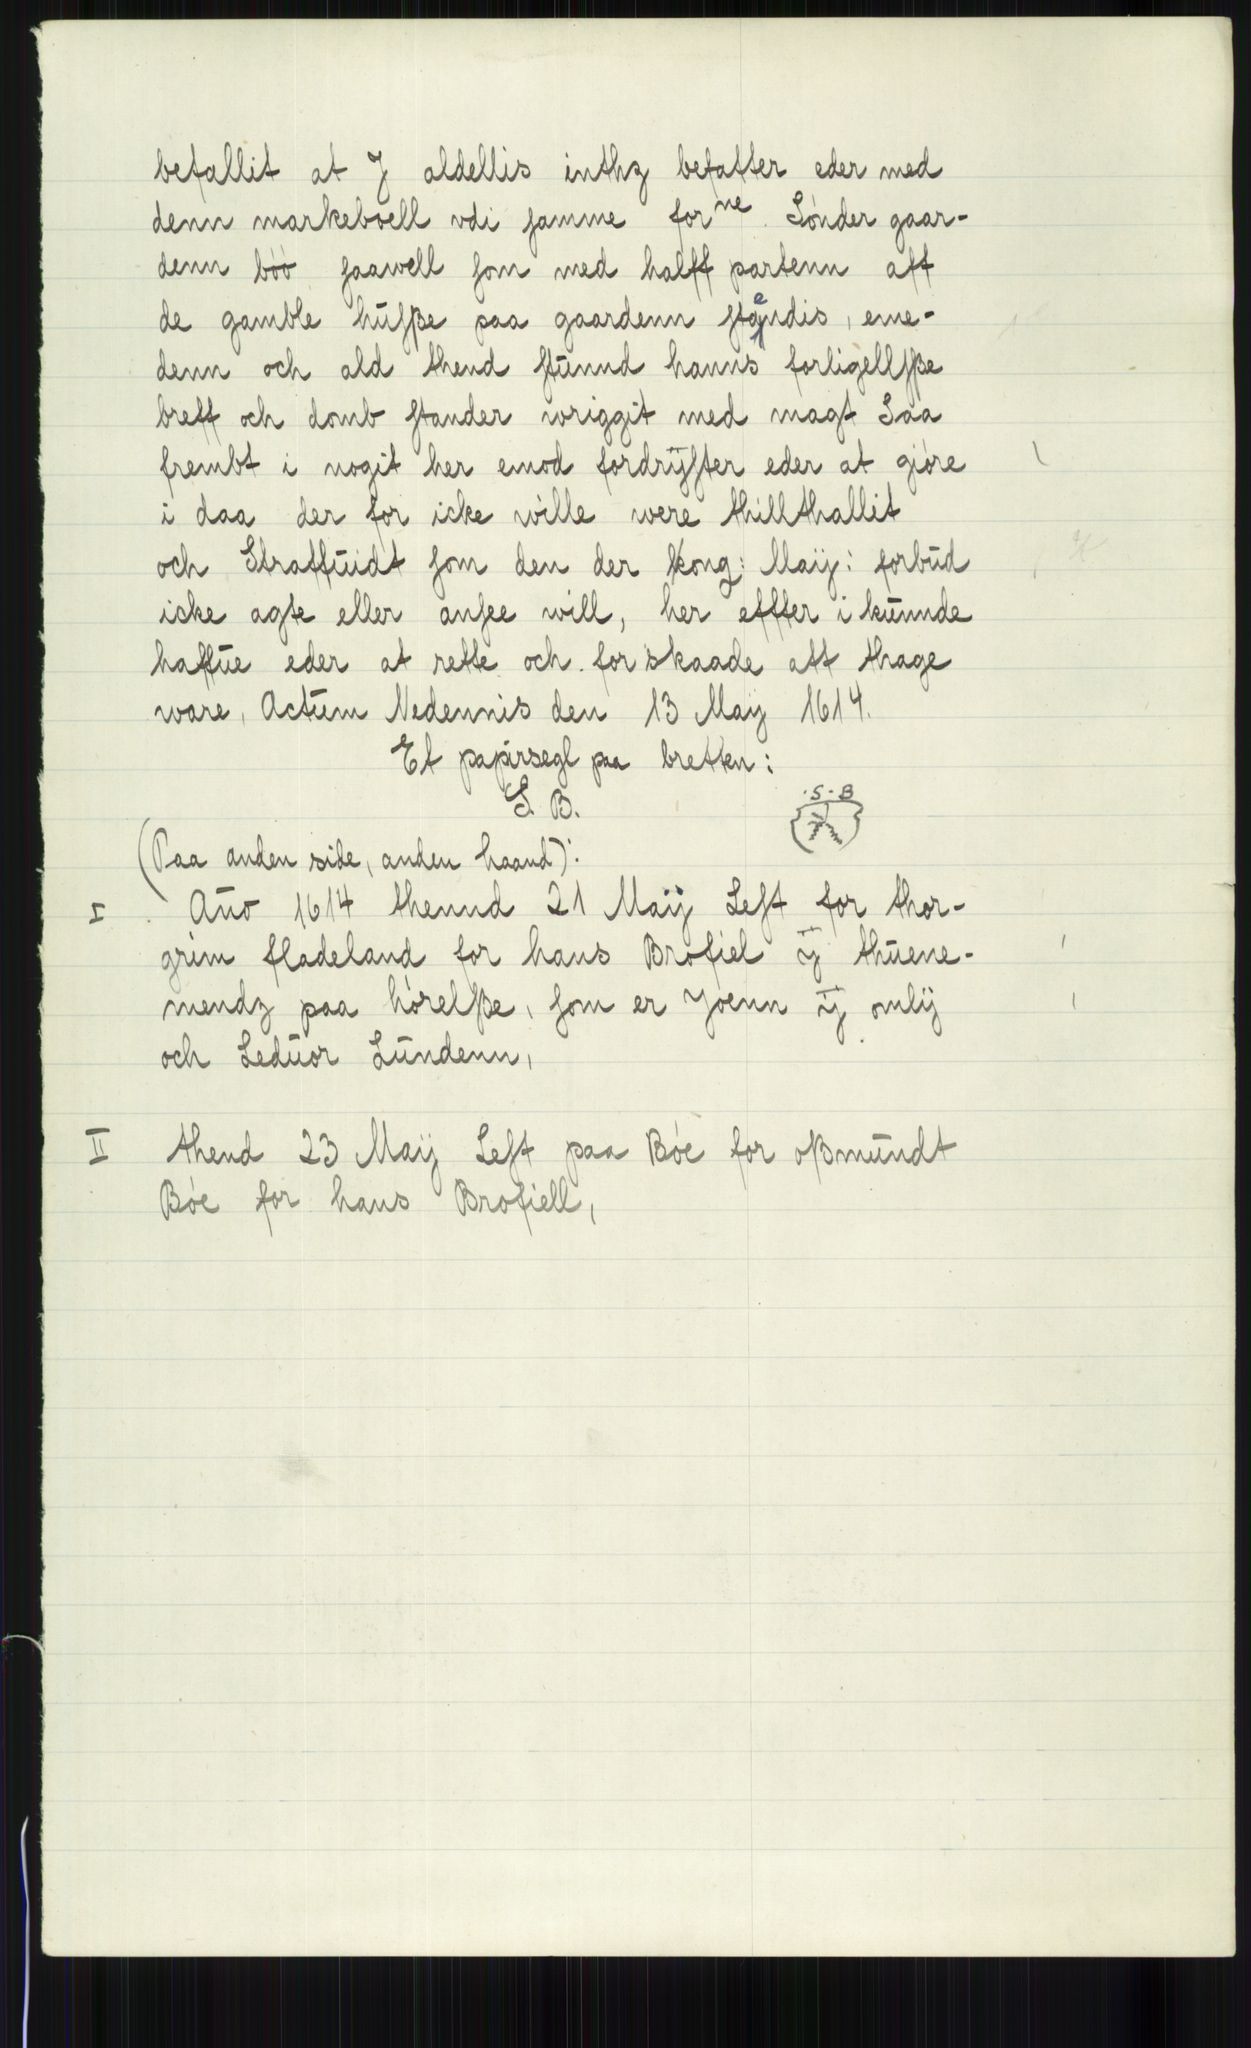 befallit at J aldellis inthz befatter eder med
denn markeboell vdi samme for ne Sönder gaar-
denn böö saawell som med halff partenn aff
de gamble hüsße paa gaardenn standis, eme-
denn och ald thend stünnd hanns forligellsße
breff och domb stander wriggit med magt Saa
frembt i nogit her emod fordrÿster eder at gióre
i daa der for icke wille were thillthallit
och Straffüidt som den der kong: Maÿ: forbüd
icke agte eller ansee will, her effter i künnde
haffüe eder at rette och for skaade att thage
ware, Actüm Nedennis den 13 Maÿ 1614.
Et papirsegl paa bretten:
S. B.
·S·B
(Paa anden side, anden haand):
I Año 1614 thennd 21 Maÿ Lest for thor-
grim fladeland for hans Brofiel ÿ thüene-
mendz paa hörelße, som er Joenn ÿ omlÿ
och Ledüor Lündenn,
II thend 23 Maÿ Lest paa Böe for oßmündt
Böe for hans Brofiell,